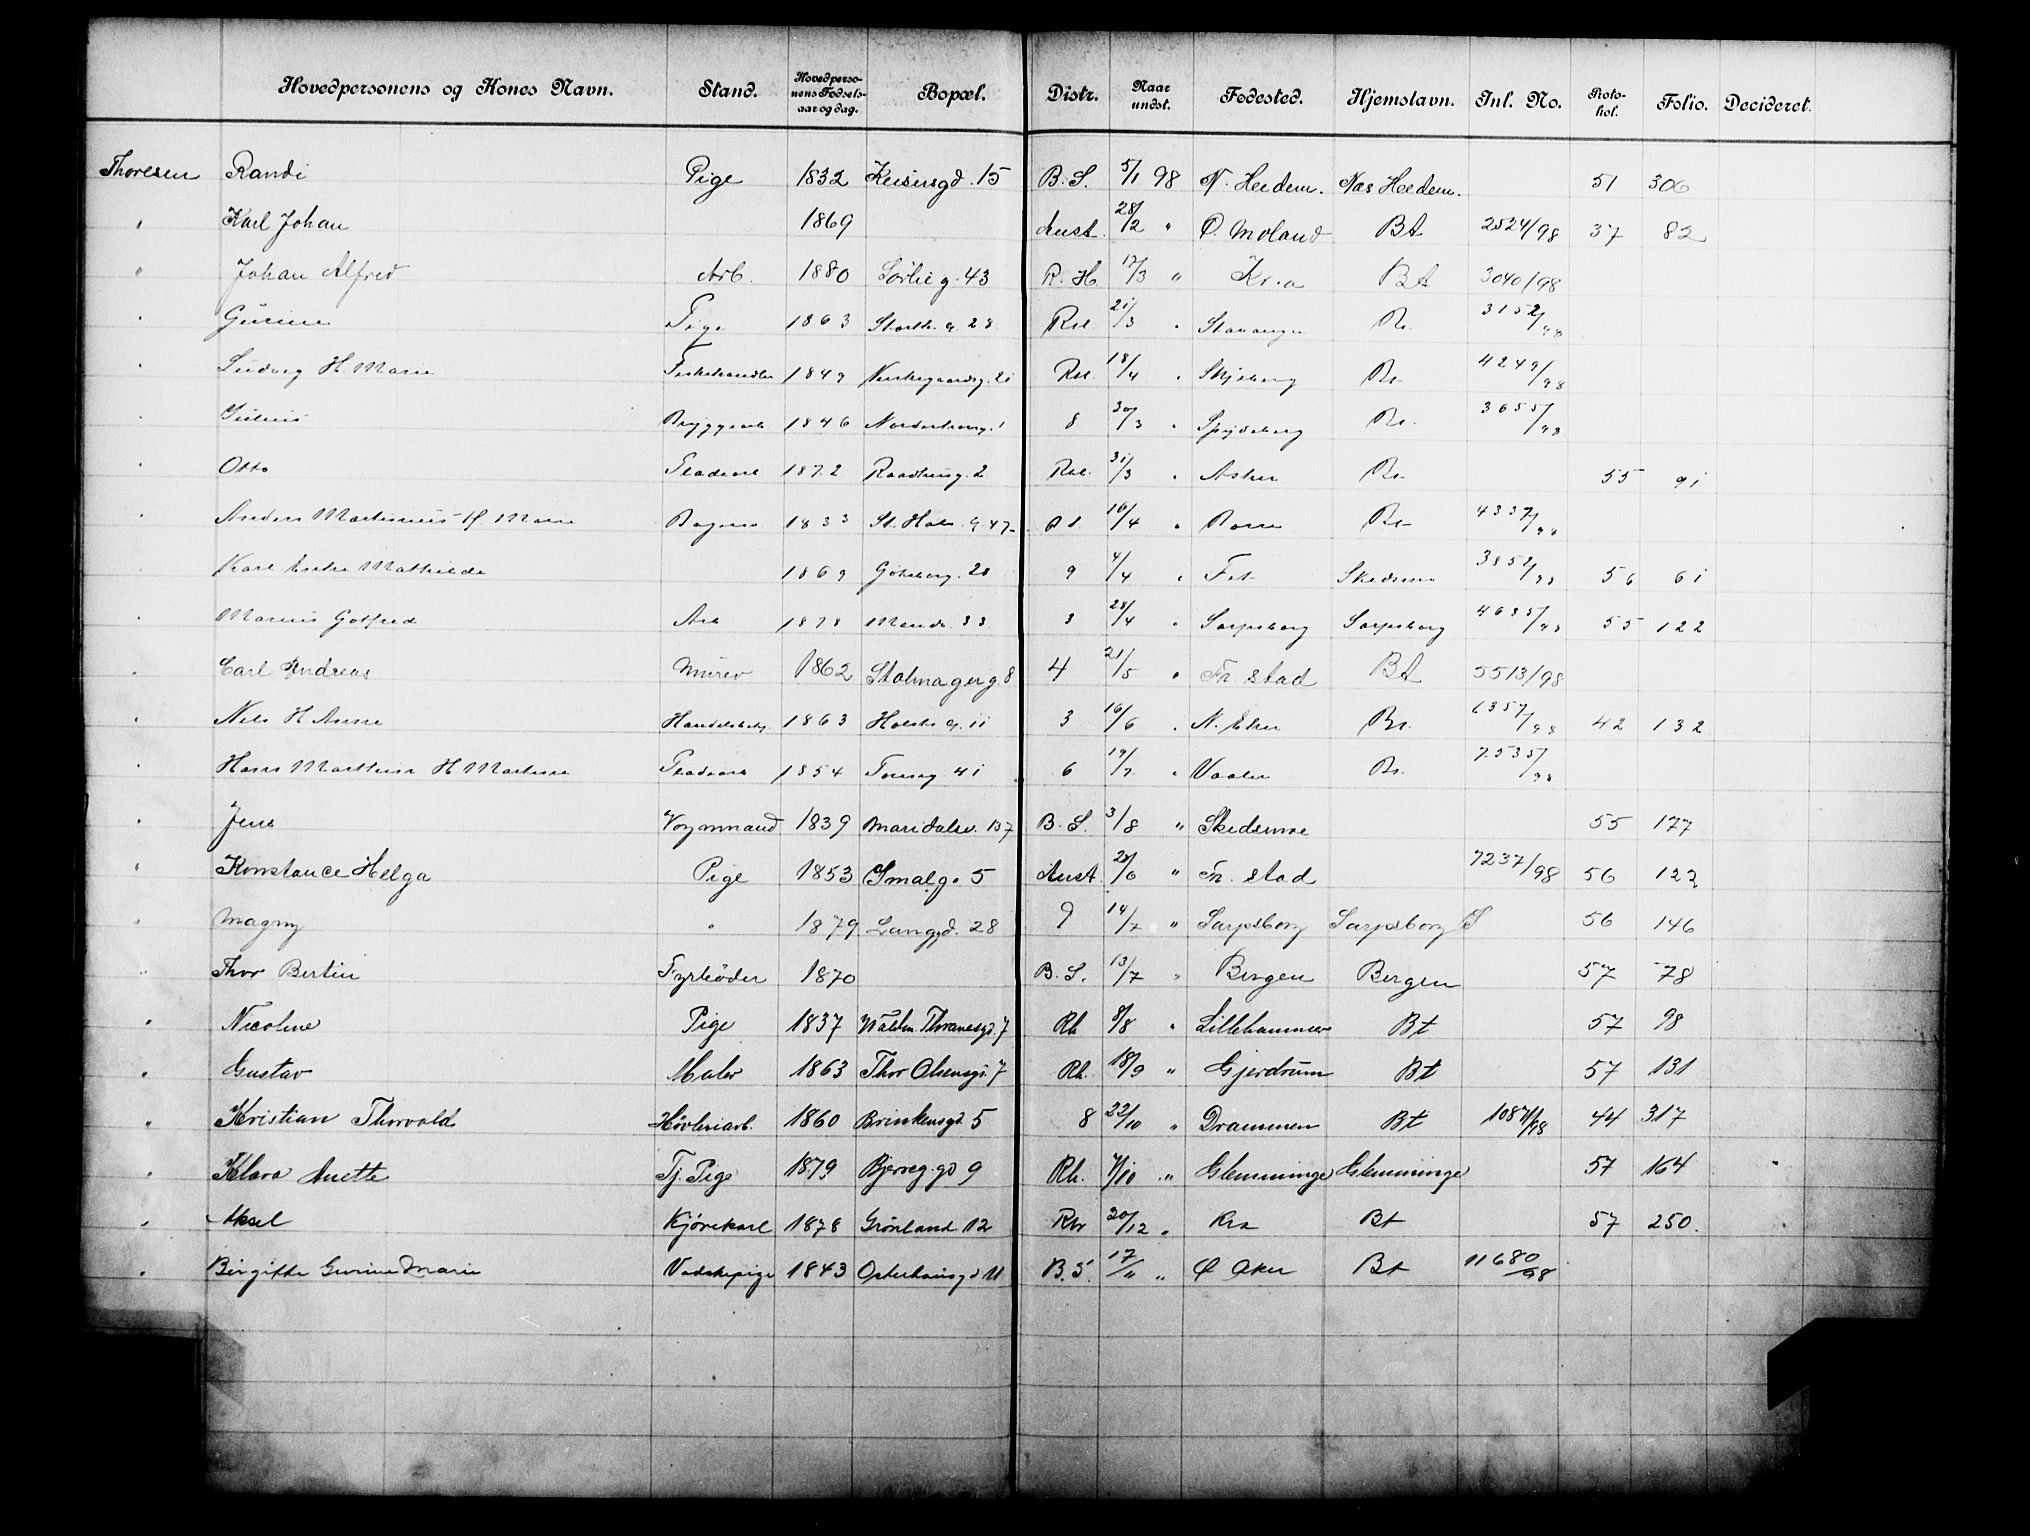 Hovedpersonens og Kones Navn. Stand. Hovedpersonens Fødselsaar og dag. Bopæl. Distr. Naar undst. Fødested. Hjemstavn. Inl. No. Protokol. Folio. Decideret.
Thoresen Randi Pige 1832 Keisersgd. 15 B. S. 5/1 98 N. Hedem. Næs Hedem. 51 306
" Karl Johan 1869 Aust. 28/2 " Ø. Moland Bt 2524/98 37 82
" Johan Alfred Arb. 1880 Sørlie g. 43 R. H. 17/3 " Kr.a Bt 3040/98
" Gurine Pige 1863 Storth. g. 28 Rst. 21/3 " Stavanger Bt. 3152/98
" Ludvig H. Marie Fiskehandler 1849 21 Rst. 18/4 " Skjeberg Bt 4249/98
" Julius Bryggearb 1846 8 30/3 " Spydeberg Bt. 3655/98
" Otto Pladsarb 1872 Raadhusg. 2 Rst. 31/3 " Asker Bt. 55 91
" Anders Martinius H. Marie 1833 St. Halv. g. 47 16/4 " Bt 4337/98
Karl Mathilde 1869 Göteborg. 28 9 4/4 " Fet Skedsmo 3852/98 56 61
" Marius Gotfred Arb 1878 33 3 28/4 " Sarpsborg Sarpsborg 4685/98 55 122
" Carl Andreas Murer 1862 Stolmager g. 8 4 21/5 " Fr. stad Bt 5513/98
" Nils H. Anne 1863 Holsts g. 11 3 16/6 " N. Eker Bt. 6357/98 42 132
" Hans Marthin H. Martine Pladsarb 1854 41 6 19/7 " Vaaler Bt. 7535/98
" Jens Vognmand 1839 Maridalsv. 137 B. S. 3/8 " Skedsmo 55 177
" Konstance Helga Pige 1853 Smalg. 5 Aust. " Fr. stad 7237/98 56 122
" Magny " 1879 Langgd. 28 9 14/7 " Sarpsborg Sarpsborg S 56 146
" Thor Bertin Fyrbøder 1870 B. S. 13/7 " Bergen Bergen 57 78
" Nicoline Pige 1837 Waldm. Thranesgd. 7 Rh 8/8 " Lillehammer Bt 57 98
" Gustav Maler 1863 Thor Olsensgd. 7 Rh. 18/9 " Gjerdrum Bt 57 131
" Kristian Thorvald Høvleriarb. 1860 Brinkensgd. 5 8 22/10 " Drammen Bt 44 317
" Klara Anette Tj. Pige 1879 Bjerreg.gd 9 Rh. " Glemminge Glemminge 57 164
" Aksel Kjørekarl 1878 Grønland 12 Rh 20/12 " Kra Bt 57 250.
" Birgitte Gurine Marie Vaskepige 1843 Osterhausgd 11 B. S. 17/11 " Ø Aker Bt 11680/98